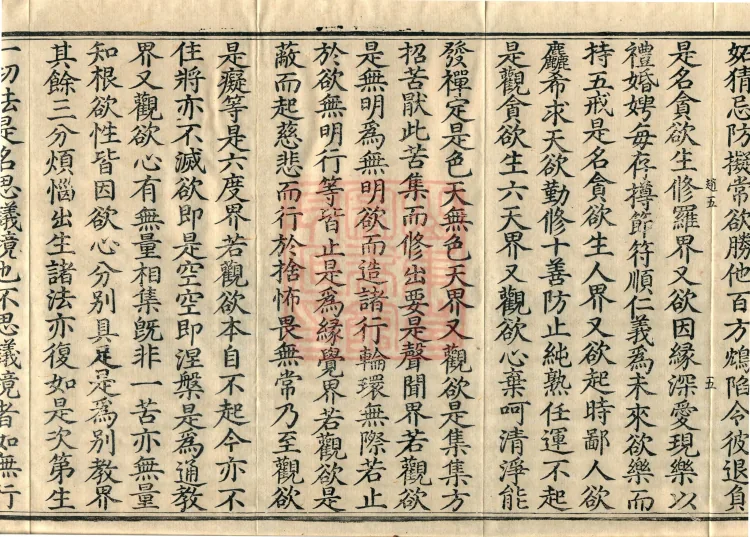 妬猜忌防擬常欲勝他百方鴆陷令彼退負
是名貪欲生修羅界又欲因緣深愛現樂以
趙五
五
禮婚娉每存撙節符順仁義為未來欲樂而
持五戒是名貪欲生人界又欲起時鄙人欲
麤希求天欲勤修十善防止純熟任運不起
是觀貪欲生六天界又觀欲心棄呵清淨能
發禪定是色天無色天界又觀欲是集集方
招苦猒此苦集而修出要是聲聞界若觀欲
是無明為無明欲而造諸行輪環無際若止
於欲無明行等皆止是為緣覺界若觀欲是
蔽而起慈悲而行於捨怖畏無常乃至觀欲
是癡等是六度界若觀欲本自不起今亦不
住將亦不滅欲即是空空即涅槃是為通教
界又觀欲心有無量相集既非一苦亦無量
知根欲性皆因欲心分別具足是為別教界
其餘三分煩惱出生諸法亦復如是次第生
一切法是名思議境也不思議境者如無行